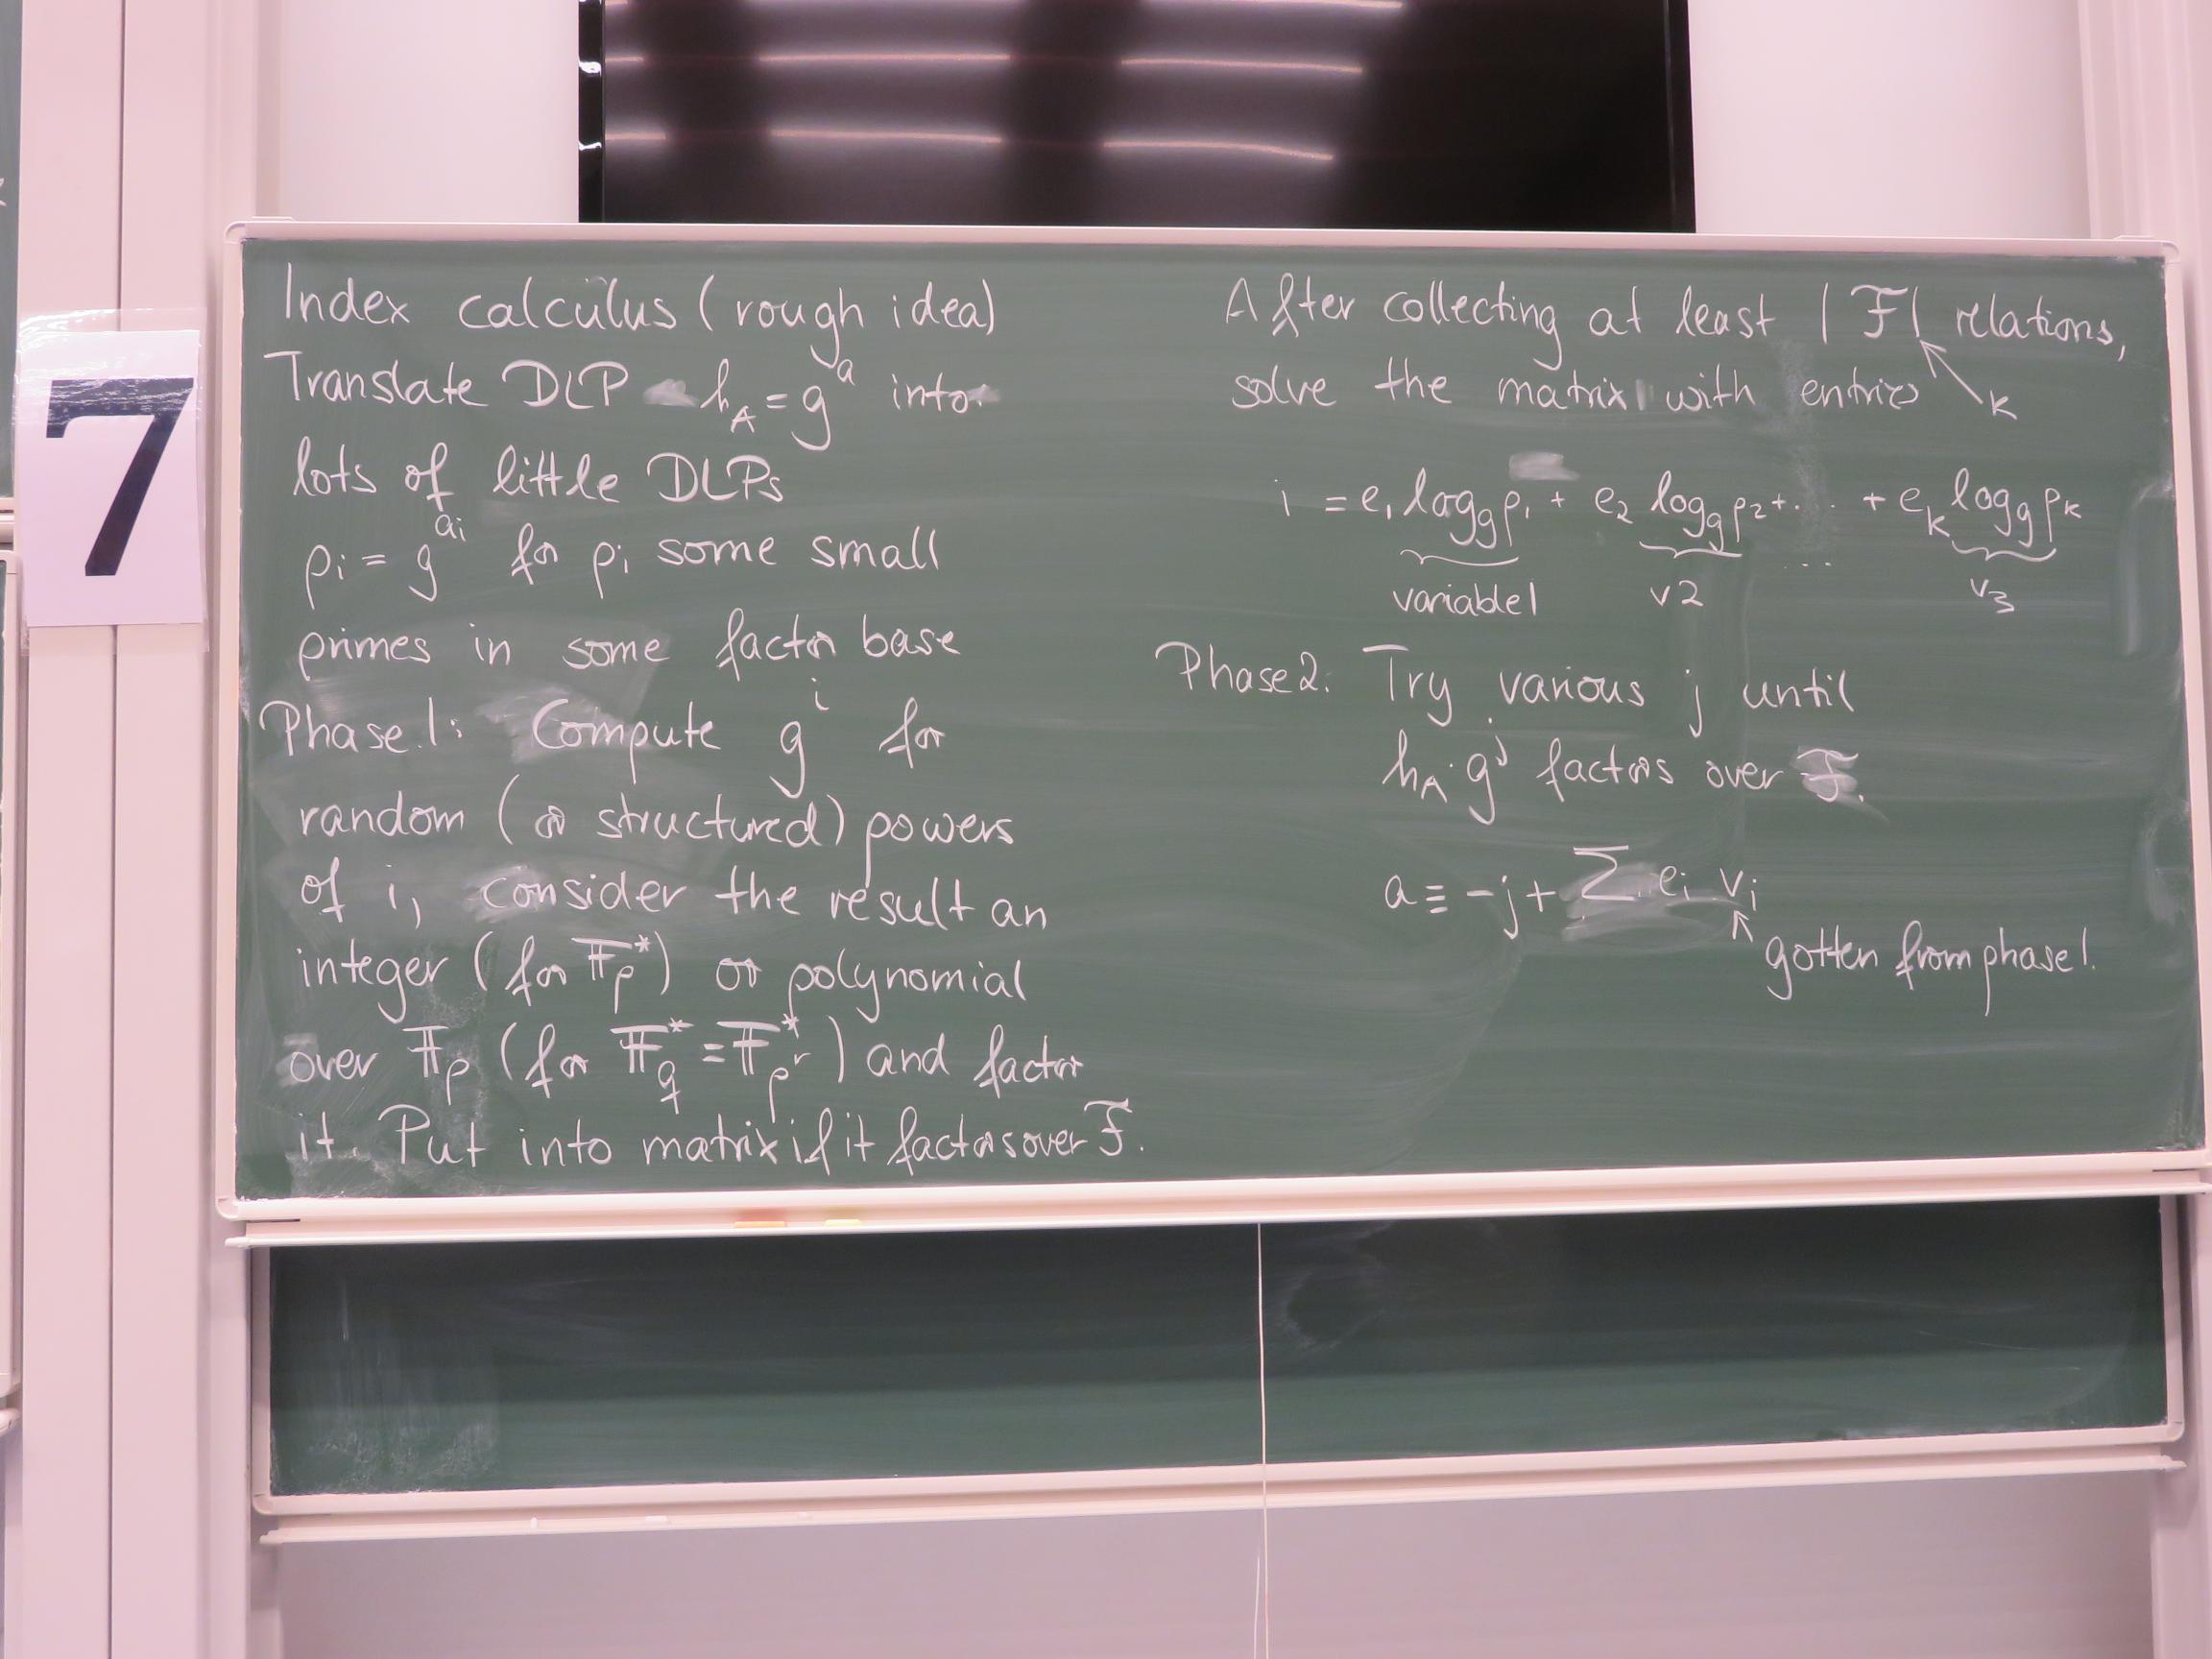 7
Index calculus (rough idea)
Translate DLP h_A = g^a into
lots of little DLPs
p_i = g^{a_i} for p_i some small
primes in some factor base
Phase 1: Compute g^i for
random (or structured) powers
of i, consider the result an
integer (for 𝔽_p^*) or polynomial
over 𝔽_p (for 𝔽_q^* = 𝔽_{p^r}^*) and factor
it. Put into matrix if it factors over ℱ.
After collecting at least |ℱ| relations,
k
solve the matrix with entries
i = e_1 log_g p_1 + e_2 log_g p_2 + ... + e_k log_g p_k
variable 1 v2 ... v_3
Phase 2: Try various j until
h_A · g^j factors over ℱ.
a ≡ -j + Σ e_i v_i
gotten from phase 1.